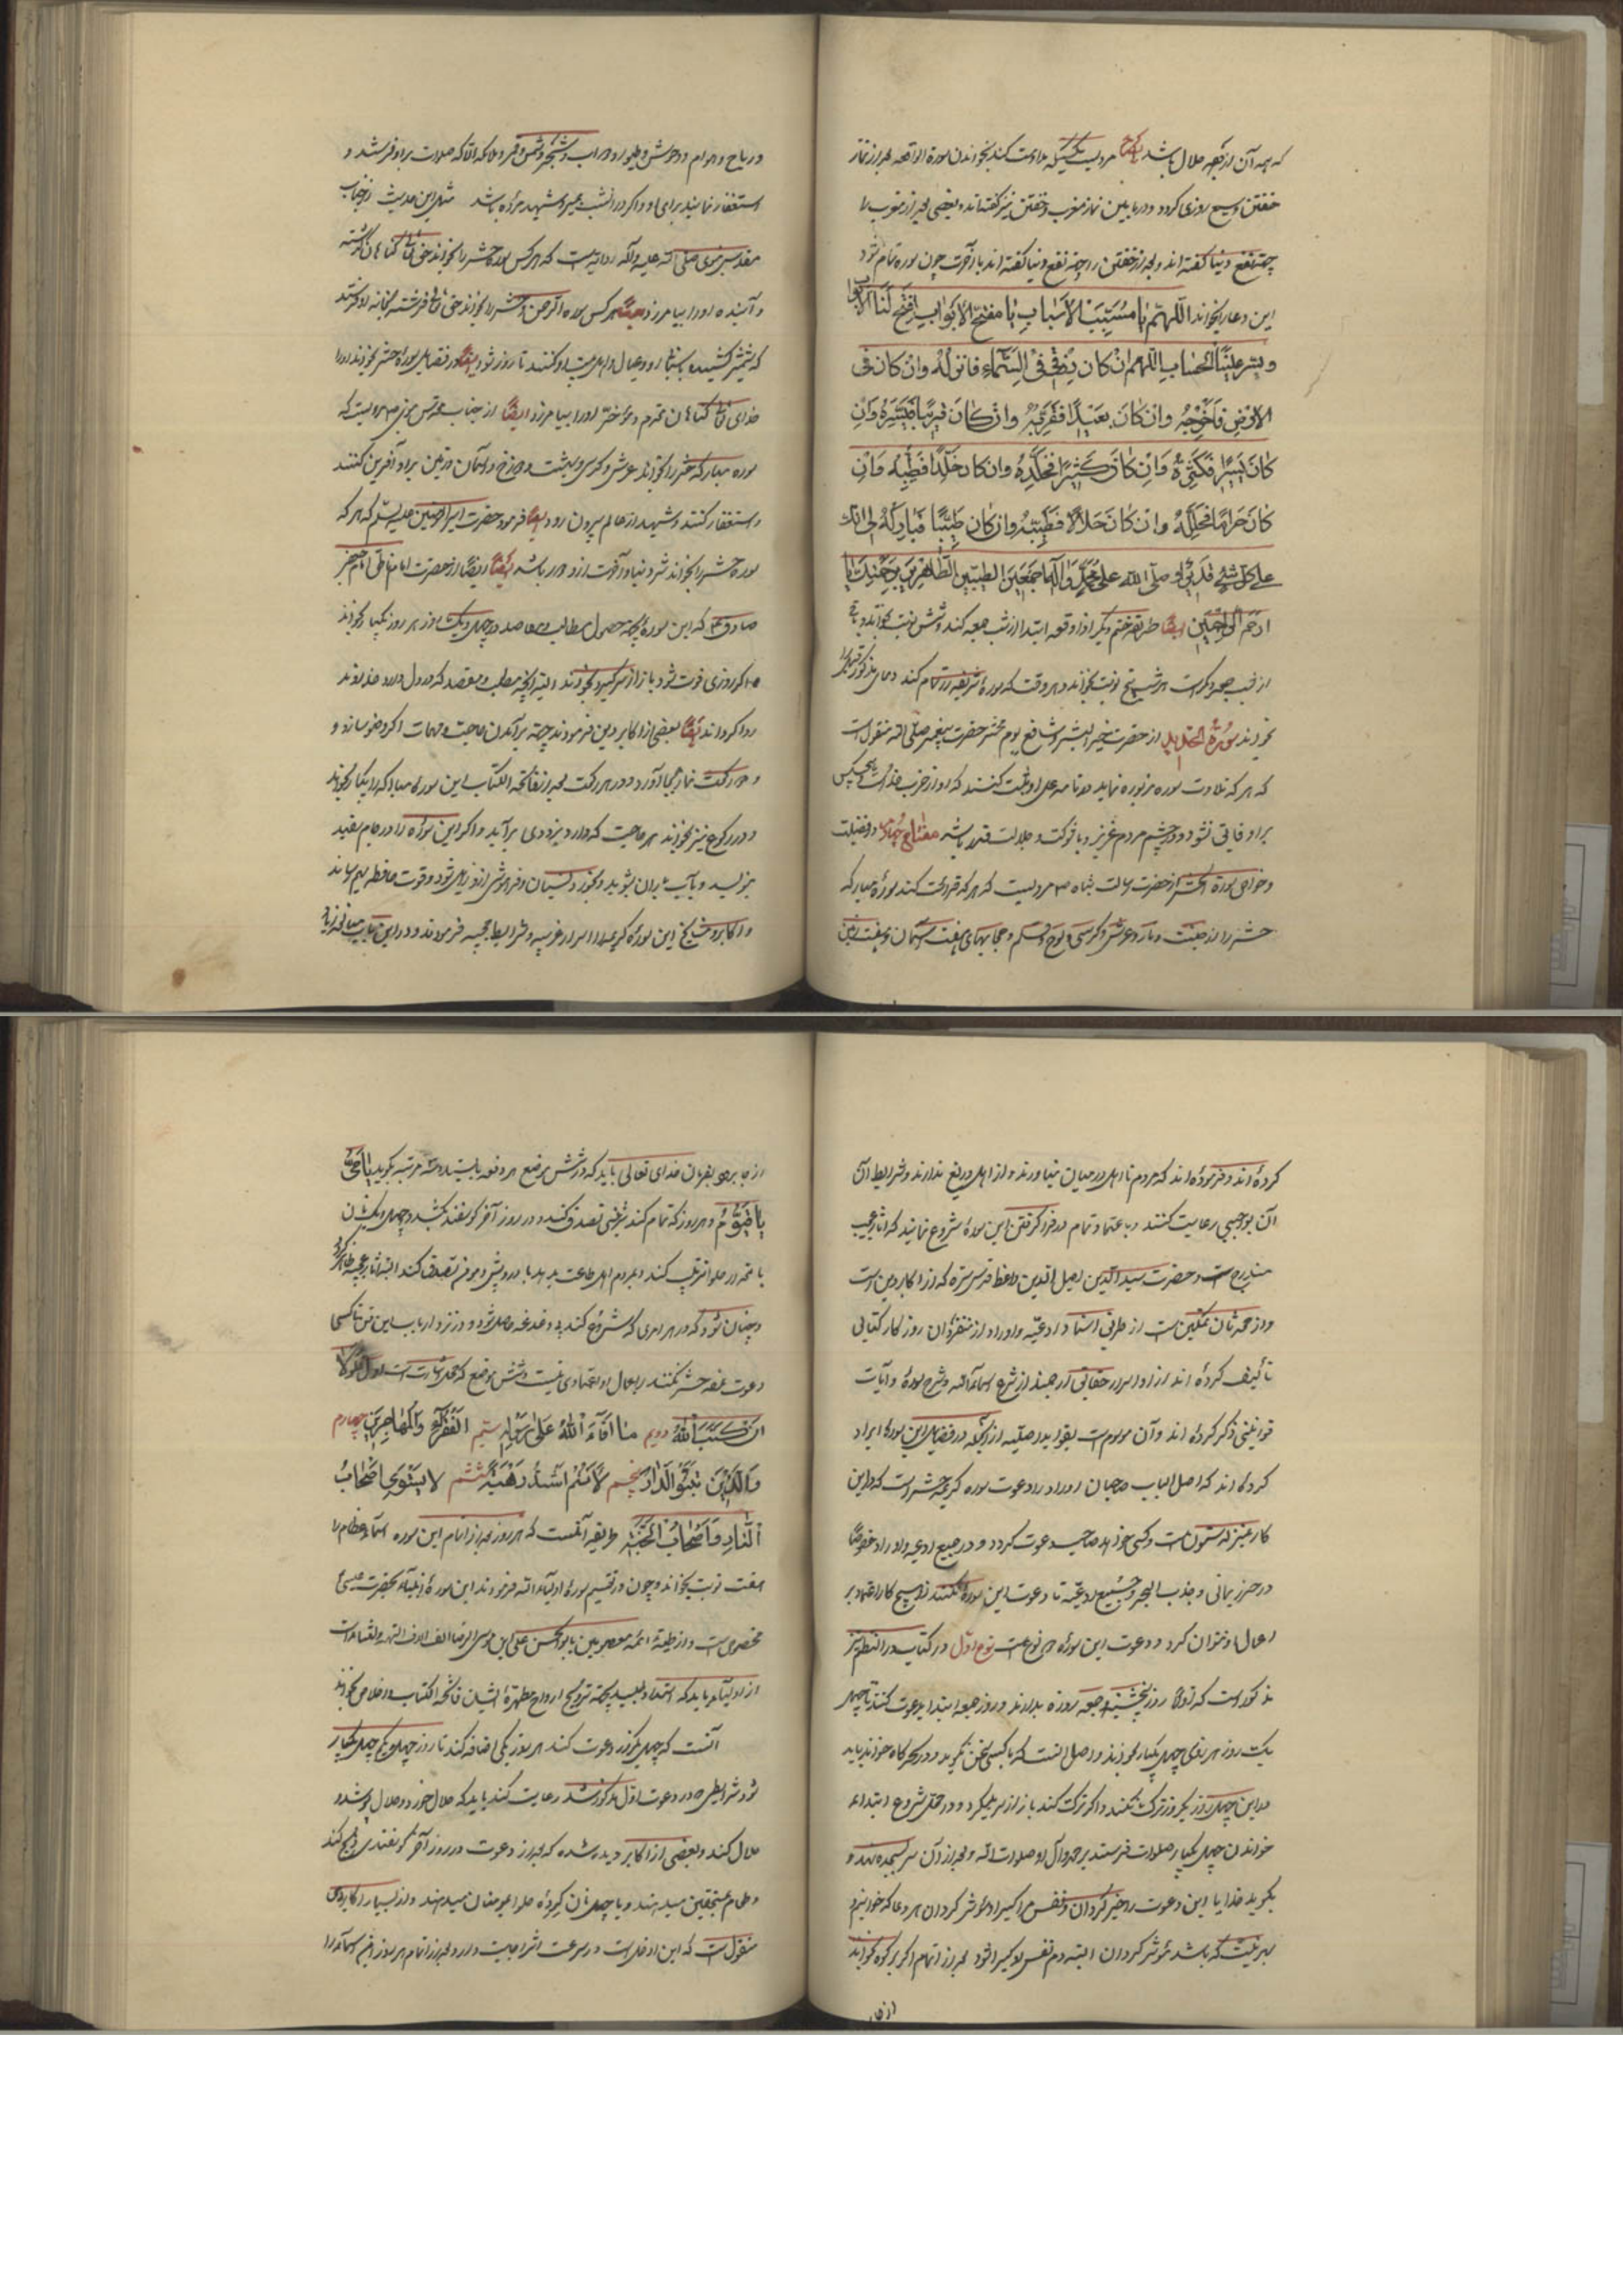 که همه آن از وجه حلال باشد ایضاً مرویست که هر که مداومت کند بخواندن سورة الواقعه بعد از نماز
خفتن وسیع روزی گردد و در مابین نماز مغرب و خفتن نیز گفته‌اند و بعضی بعد از مغرب را
جهة نفع دنیا گفته اند و بعد از خفتن را جهة نفع دنیا گفته اند با آخرت چون سوره تمام شود
این دعا را بخواند اللّهمّ یا مُسَبِّبَ الأسباب یا مفتّح الأبواب افتح لنا الأبواب
و یسّر علینا الحساب اللّهم ان کان رزقی فی السّماء فانزله وان کان فی
الارض فاخرجه وان کان بعیدًا فقرّبه وان کان قریبًا فیسّره وان
کان یسیرًا فکثّره وان کان کثیرًا فخلّده وان کان خلّدًا فطیّبه وان
کان حرامًا فحلّله وان کان حلالًا فطیّبه وان کان طیّبًا فبارک لی انّک
علی کلّ شیٔ قدیر و صلّی الله علی محمّد وآله اجمعین الطیّبین الطّاهرین برحمتک یا
ارحم الرّاحمین ایضًا طریقه ختم دیگر اذا وقعه ابتدا از شب جمعه کند و شش نوبت بخواند و باقی
از شب جمعه دیگر است هر شب پنج نوبت بخواند و هر وقت که سورهٔ شریفه را تمام کند دعای مذکور
بخواند سورة الحدید از حضرت خیر البشر و شافع یوم محشر حضرت پیغمبر صلی الله منقولست
که هر که تلاوت سوره مزبوره نماید در نامه عمل او ثبت کنند که او از حزب خداست و هیچکس
براو فایق نشود و در چشم مردم عزیز و با شوکت و جلالت قدر باشد مفتاح چهارم در فضیلت
و خواص سورة الحشر از حضرت رسالت پناه ص مرویست که هر که قرائت کند سورهٔ مبارکه
حشر را از جنت و نار و عرش و کرسی و لوح و قلم و حجابهای هفت آسمان و هفت زمین
و ریاح و هوام و وحوش و طیور و دواب و شجر و شمس و قمر و ملائکه الا که صلوات بر او فرستند و
استغفار نمایند برای او و اگر در آنشب بمیرد شهید مرده باشد مثل این حدیث از جناب
مقدس نبوی صلی الله علیه وآله روایتست که هر کس سوره حشر را بخواند حق تعالی گناهان گذشته
و آینده او را بیامرزد ایضًا هر کس سوره الرحمن و حشر را بخواند حق تعالی فرشته بخانه او فرستد
که شمشیر کشیده پاسبانی او و عیال و اهل بیت او کنند تا روز شود ایضًا در فضایل سورهٔ حشر بخواند او را
خدای تعالی گناهان مقدم و مؤخر او را بیامرزد ایضًا از جناب مقدس نبوی ص مرویست که
سوره مبارکه حشر را بخواند عرش و کرسی و بهشت و دوزخ و آسمان و زمین براو آفرین کنند
و استغفار کنند و شهید از عالم بیرون رود ایضًا فرمود حضرت امیرالمؤمنین علیه السلام که هر که
سوره حشر را بخواند شر دنیا و آخرت از او دور باشد ایضًا ایضًا از حضرت امام ناطق امام جعفر
صادق ع که این سوره بجهة حصول مطالب و مقاصد در چهل و یک روز هر روز یکبار بخواند
و اگر روزی فوت شود باز از سر گیرد و بخواند البته بجهة مطلب و مقصد که در دل دارد خداوند
روا گرداند ایضًا بعضی از اکابر دین فرمودند جهة برآمدن حاجت و مهمات اگر وضو سازد و
دو رکعت نماز بجا آورد و در هر رکعت بعد از فاتحة الکتاب این سوره مبارکه را یکبار بخواند
و در رکوع نیز بخواند هر حاجت که دارد بزودی برآید و اگر این سوره را در جام سفید
بنویسد و بآب باران بشوید و بخورد نسیان و فراموشی از او زایل شود و قوت حافظه بهم رساند
و اکابر و مشایخ این سوره کریمه را اسرار غریبه و شرایط عجیبه فرمودند و در این باب مبالغه زیاد
کردهٔ اند و فرمودهٔ اند که مردم نا اهل در میان نیاورند و از اهل دریغ ندارند و شرایط آن
آن بوجهی رعایت کنند و باعتماد تمام در فرا گرفتن این سورهٔ شروع نمایند که آثار عجیب
مندرج است و حضرت سید الدین اصیل الدین واعظ قدس سره که از اکابر دین است
تألیف کردهٔ اند از اوراد و اسرار حقایق آثار چند از شرح اسماءالله و شرح سورهٔ و آیات
قوانینی ذکر کردهٔ اند و آن موسومست بفواید اصلیه از آنجمله در فضایل این سورهٔ ایراد
کرده‌اند که اصل الباب صاحبان اوراد را دعوت سوره کریمه حشر است که در این
کار بمنزله ستون است و کسی خواهد صاحب دعوت گردد و در جمیع ادعیه و اوراد خصوصًا
در حرز یمانی و حزب البحر و جمیع ادعیه تا دعوت این سورهٔ نکند در هیچ کار اعتماد بر
اعمال او نتوان کرد و دعوت این سورهٔ دو نوعست نوع اوّل در کتاب در النظیم نیز
مذکور است که اولا روز پنجشنبه و جمعه روزه بدارند و روز جمعه ابتدا بدعوت کنند تا چهل
یک روز هر روزی چهل یکبار بخواند و اصل آنست که با کسی سخن نگوید و در سحرگاه خواند باید
در این چهل روز یکروز ترک نکند و اگر ترک کند باز از سر بگیرد و در محل شروع ابتدا بعد
خواندن چهل یکبار صلوات فرستد بر محمد وآل او صلوات الله و بعد از آن سر بسجده نهد و
بگوید خدایا این دعوت را خیر گردان و نفس مرا اکسیر او مؤثر گردان هر دعا که خوانم و
بهر نیت که باشد مؤثر گردان البته دم نفس او کسیر اثر شود بعد از اتمام اگر بر کوه بخواند
از جا
از جا برود بفرمان خدای تعالی باید که در شش موضع هر دفعه بایستد و سه مرتبه بگوید یا حیّ
یا قیّوم و هر روز که تمام کند شربتی تصدق کند و در روز آخر گوسفند بکشد و چهل و یک نان
باضم در حلوا ترتیب کند و بمردم اهل طاعت بدهد یا درویش و مؤمن تصدق کند البته آثار عجیبه ظاهر گردد
و چنان شود که در هر امری که شروع کند بی دغدغه حاصل شود و در نزد ارباب این فن تا کسی
دعوت سوره حشر نکند بر اعمال او اعتمادی نیست و شش موضع که محل اشارت است اول لولا
ان کتب الله دویم ما افاء الله علی رسوله سیّم الفقراء والمهاجرین چهارم
والذین تبوّؤ الدّار پنجم لأنتم اشدّ رهبة ششم لا یستوی اصحاب
النّار واصحاب الجنّة طریقه آنست که هر روز بعد از اتمام این سوره اسماء عظام را
هفت نوبت بخواند و چون در تقسیم سوره اولیاءالله فرمودند این سورهٔ از انبیاء بحضرت عیسیٰ
مخصوص است و از طبقهٔ ائمه معصومین بابوالحسن علی بن موسی الرضا الف الاف التحیة والثناست
از اولیاء باید که استمداد طلبید بجهة ترویح ارواح مطهرهٔ ایشان فاتحة الکتاب و اخلاص بخواند
آنست که چهل یکروز دعوت کند هر روز یکی اضافه کند تا روز چهل و یکم چهل یکبار
شود شرایطی که در دعوت اول مذکور شد رعایت کند باید که حلال خورد و حلال پوشد و
حلال کند و بعضی از اکابر دیده شده که بعد از دعوت در روز آخر گوسفندی ذبح کند
و طعام بمستحقین میدهند و یا چهل نان گردهٔ حلوا بمؤمنان میدهند و از بسیار اکابر دین
منقولست که این اولی است و سرعت اثر اجابت دارد و بعد از اتمام هر روز این اسماء را